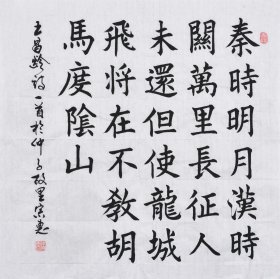 秦時明月漢時
關萬里長征人
未還但使龍城
飛將在不教胡
馬度陰山
王昌齡詩一首於仲子故里